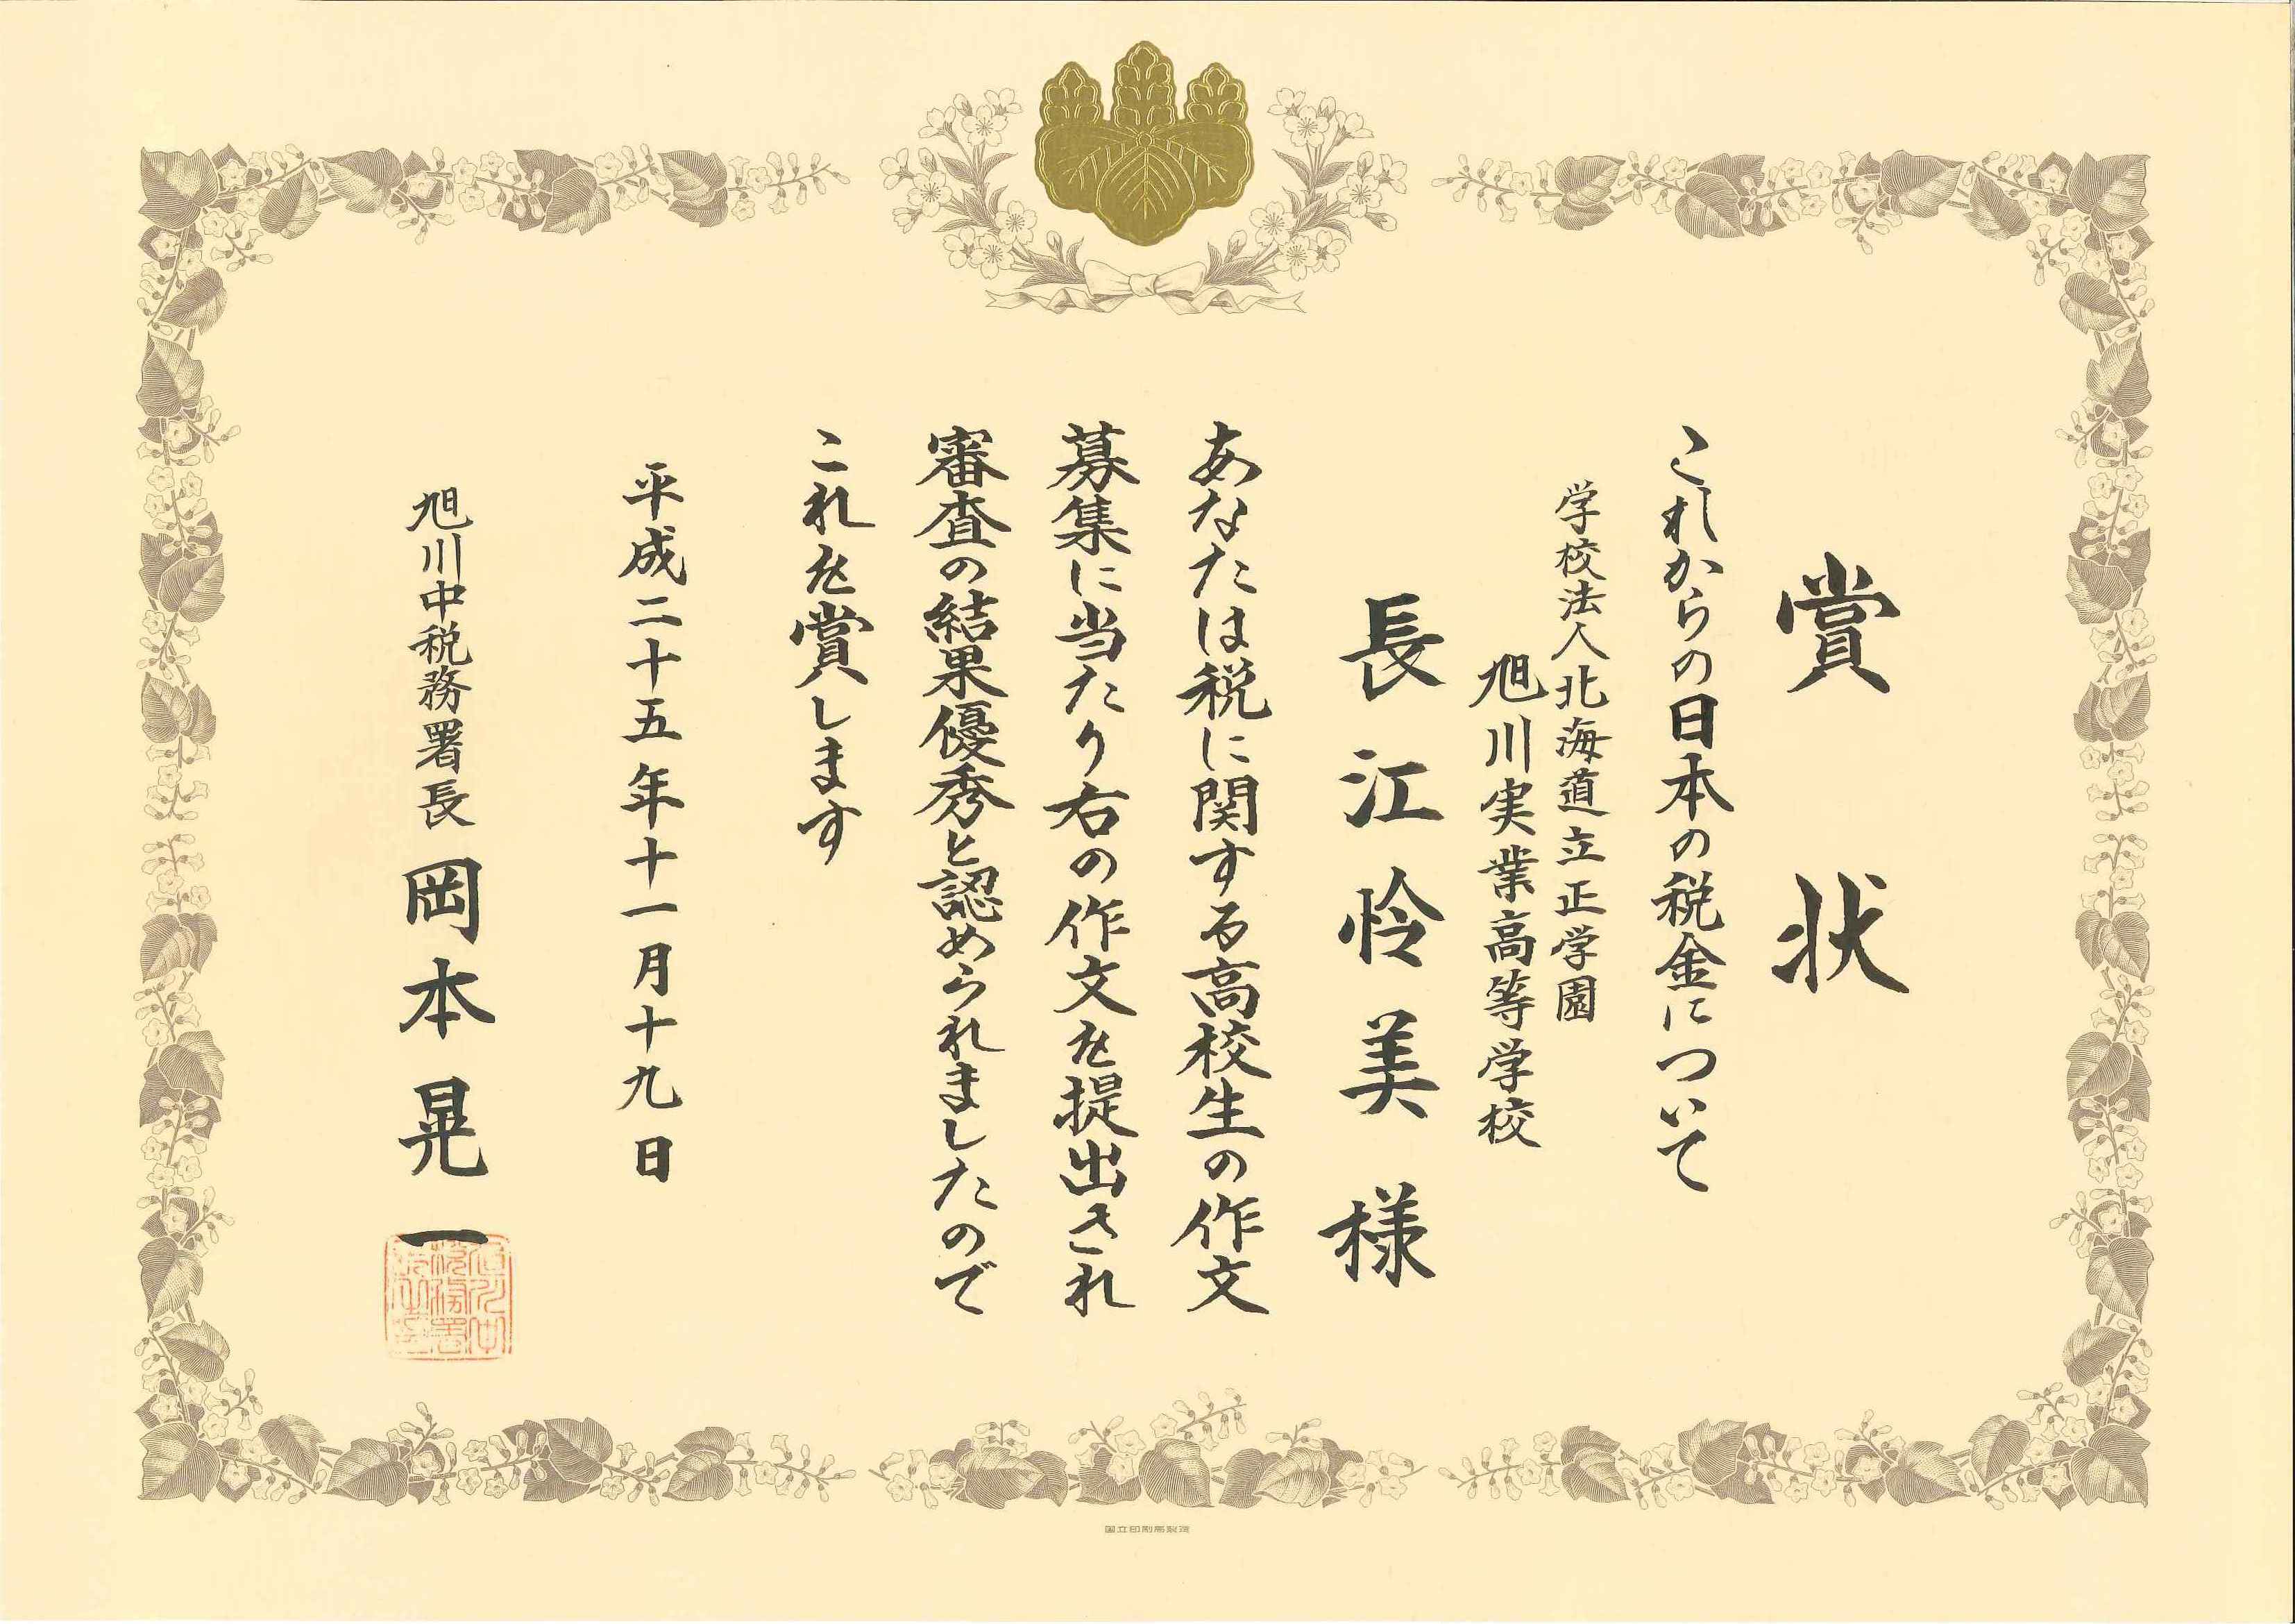 賞状
これからの日本の税金について
学校法人北海道立正学園
旭川実業高等学校
長江怜美様
あなたは税に関する高校生の作文
募集に当たり右の作文を提出され
審査の結果優秀と認められましたので
これを賞します
平成二十五年十一月十九日
旭川中税務署長 岡本晃一
国立印刷局製造